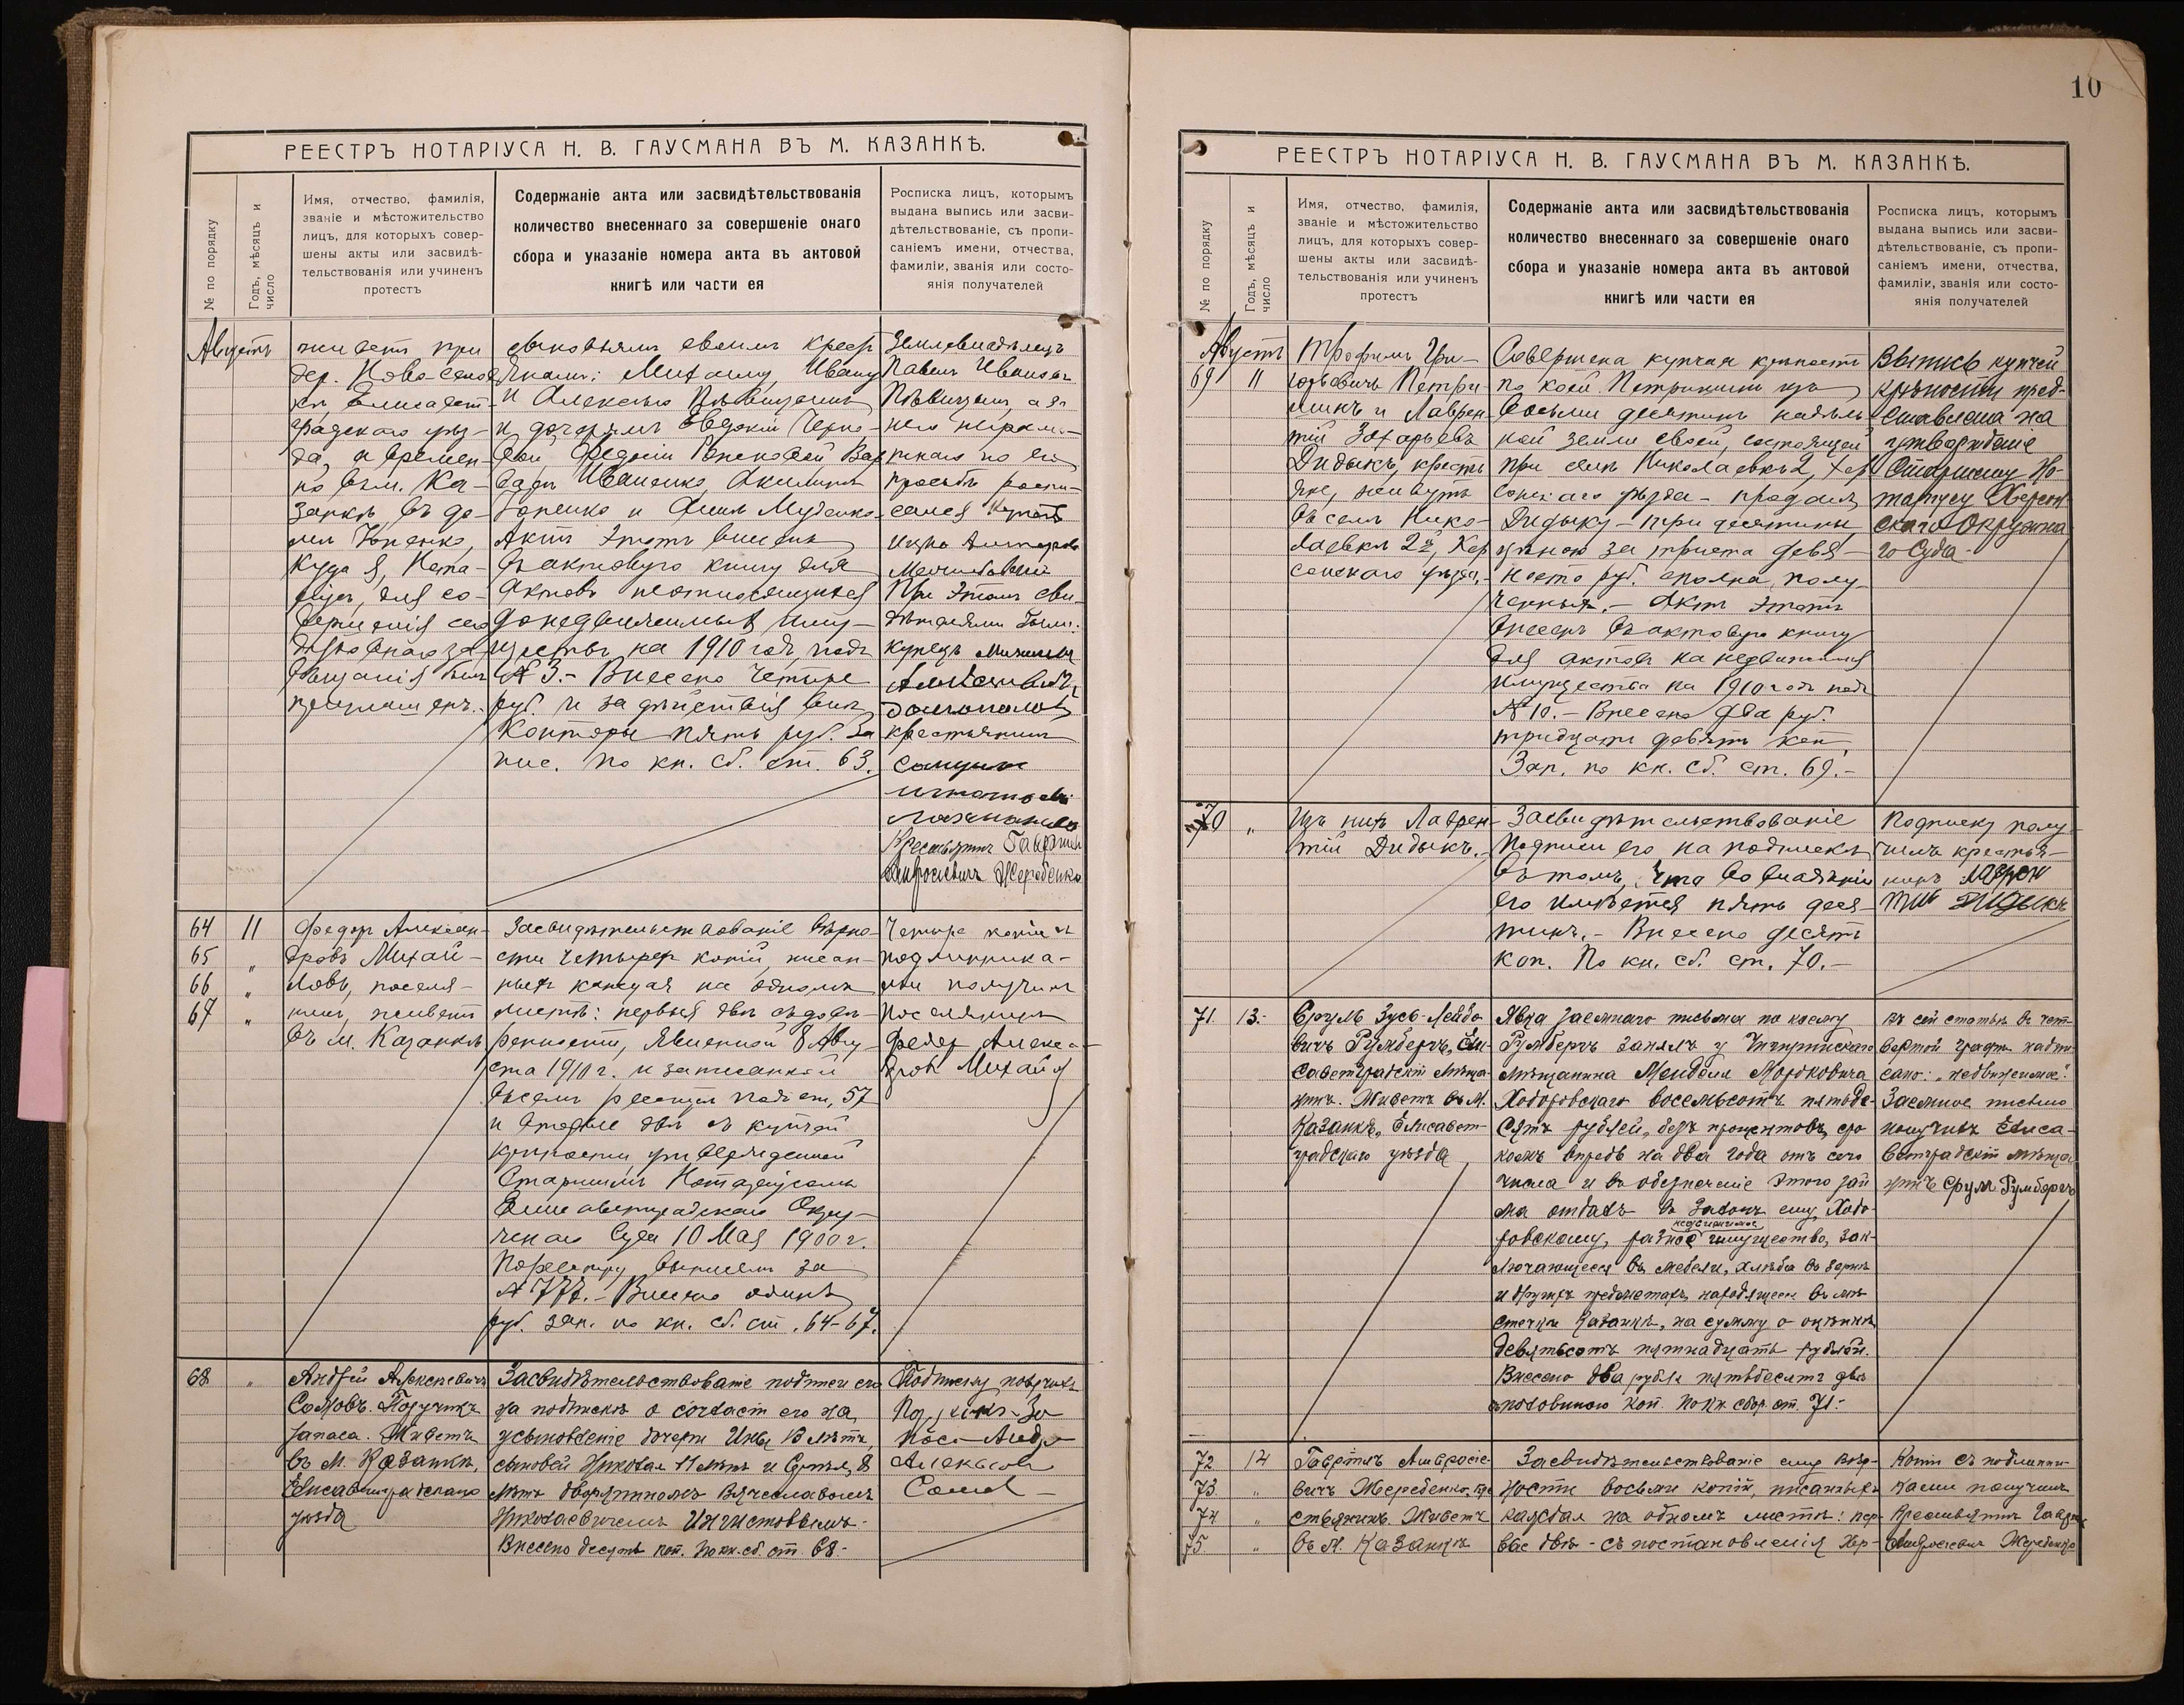 РЕЕСТРЪ НОТАРІУСА Н. В. ГАУСМАНА ВЪ М. КАЗАНКѢ.
№ по порядку
Годъ, мѣсяцъ и
число
Имя, отчество, фамилія,
званіе и мѣстожительство
лицъ, для которыхъ совер-
шены акты или засвидѣ-
тельствованія или учиненъ
протестъ
Содержаніе акта или засвидѣтельствованія
количество внесеннаго за совершеніе онаго
сбора и указаніе номера акта въ актовой
книгѣ или части ея
Росписка лицъ, которымъ
выдана выпись или засви-
дѣтельствованіе, съ пропи-
саніемъ имени, отчества,
фамиліи, званія или состо-
янія получателей
Августъ
живетъ при
дер. Ново-
Елисавет-
градскаго уѣз-
да, а времен-
но въ м. Ка-
занкѣ, въ до-
мѣ
куда я, Нота-
ріусъ, для со-
вершенія сего
былъ
приглашенъ.
сыновьямъ своимъ крест
янамъ: Михаилу, Ивану
и Алексѣю
и дочерямъ Евдокіи
Иваненко, Акилинѣ
Актъ этотъ внесенъ
въ актовую книгу для
актовъ неотносящихся
до недвижимыхъ иму-
ществъ на 1910 годъ подъ
№ 3. - Внесено четыре
руб. и за дѣйствія внѣ
конторы пять руб. За
пис. по кн. сб. ст. 63.
Землевладѣлецъ
Павелъ Ивановъ
а за
него неграм-
тнаго по его
просьбѣ распи-
сался
При этомъ сви-
дѣтелями были:
купецъ
крестьянинъ
Крестьянинъ Гавріилъ
Амвросіевичъ Жеребенко
64 11
65 „
66 „
67 „
Федоръ Алексан-
дровъ Михай-
ловъ, поселя-
нинъ, живетъ
въ м. Казанкѣ
Засвидѣтельствованіе вѣрно-
сти четырехъ копій, писан-
ныхъ каждая на одномъ
листѣ: первыя двѣ съ довѣ-
ренности, явленной 8 Авгу-
ста 1910 г. и записанной
въ семъ реестрѣ подъ ст. 57
и вторыя двѣ съ купчей
крѣпости, утвержденной
Старшимъ Нотаріусомъ
Елисаветградскаго Окру-
жнаго Суда 10 Мая 1900 г.
По реестру выписей за
№ 777. - Внесено одинъ
руб. зап. по кн. сб. ст. 64-67.
Четыре копіи съ
подлинника-
ми получилъ
поселянинъ
Федор Алекса-
дров Михайл
68 „
Андрей Алексѣевичъ
Сомовъ. Поручикъ
запаса. Живетъ
въ м. Казанкѣ,
Елисаветградскаго
уѣзда
Засвидѣтельствованіе подписи его
на подпискѣ о согласіи его на
усыновленіе дочери Инны 13 лѣтъ,
сыновей Николая 11 лѣтъ и Сергѣя, 8
лѣтъ дворяниномъ Вячеславомъ
Николаевичемъ
Внесено десять коп. по кн. сб. ст. 68.-
Подписку получилъ
Алексѣев
Сомов
10
РЕЕСТРЪ НОТАРІУСА Н. В. ГАУСМАНА ВЪ М. КАЗАНКѢ.
№ по порядку
Годъ, мѣсяцъ и
число
Имя, отчество, фамилія,
званіе и мѣстожительство
лицъ, для которыхъ совер-
шены акты или засвидѣ-
тельствованія или учиненъ
протестъ
Содержаніе акта или засвидѣтельствованія
количество внесеннаго за совершеніе онаго
сбора и указаніе номера акта въ актовой
книгѣ или части ея
Росписка лицъ, которымъ
выдана выпись или засви-
дѣтельствованіе, съ пропи-
саніемъ имени, отчества,
фамиліи, званія или состо-
янія получателей
Августъ
69 11
Трофимъ Гри-
горьевичъ Петри-
шинъ и Лаврен-
тій Захарьевъ
Дидыкъ, кресть
яне, живутъ
въ селѣ Нико-
лаевкѣ 2й, Хер
сонскаго уѣзда,-
Совершена купчая крѣпость
по коей Петришинъ изъ
восьми десятинъ надѣль
ной земли своей, состоящей
при селѣ Николаевкѣ 2, Хер
сонскаго уѣзда - продалъ
Дидыку - три десятины
цѣною за триста девя-
носто руб. сполна полу-
ченныя.- Актъ этотъ
внесенъ въ актовую книгу
для актовъ на недвижимыя
имущества на 1910 годъ подъ
№ 10. - Внесено два руб.
тридцать девять коп.
Зап. по кн. сб. ст. 69.-
Выпись купчей
крѣпости пред-
ставлена на
утвержденіе
Старшему Но-
таріусу Херсон-
скаго Окружна
го Суда-
70 „
Изъ нихъ Лаврен-
тій Дидыкъ.-
Засвидѣтельствованіе
подписи его на подпискѣ
въ томъ, что во владѣніи
его имѣется пять деся-
тинъ.- Внесено десять
коп. По кн. сб. ст. 70.-
Подписку полу-
чилъ крестья-
нинъ Лаврен
тій Дидыкъ
71. 13.-
Сруль Зусь-Лейбо
вичъ Гумберчъ, Ели-
саветградскій мѣща-
нинъ. Живетъ въ м.
Казанкѣ, Елисавет-
градскаго уѣзда
Явка заемнаго письма по коему
Гумберчъ занялъ у Чигиринскаго
мѣщанина Менделя Мордковича
Ходоровскаго восемьсотъ пятьде-
сятъ рублей, безъ процентовъ, сро
комъ впредь на два года отъ сего
числа и въ обезпеченіе этого зай
ма отдалъ въ закладъ ему, Ходо-
недвижимое
ровскому, разное имущество, зак-
лючающееся въ мебели, хлѣбѣ въ зернѣ
и другихъ предметахъ, находящееся въ мѣ-
стечкѣ Казанкѣ, на сумму по оцѣнкѣ
девятьсотъ пятнадцать рублей.
Внесено два рубля пятьдесятъ двѣ
съ половиною коп. по кн. сбор. ст. 71.-
Въ сей статьѣ въ чет-
вертой графѣ надпи-
сано: „недвижимое".
Заемное письмо
получилъ Елиса-
ветградскій мѣща
нинъ Срулъ Гумберчъ
72. 14
73. „
74 „
75. „
Гавріилъ Амвросіе-
вичъ Жеребенко, кре
стьянинъ. Живетъ
въ м. Казанкѣ
Засвидѣтельствованіе ему вѣр-
ности восьми копій, писанныхъ
каждая на одномъ листѣ: пер-
выя двѣ - съ постановленія Хер-
Копіи съ подлинни-
ками получилъ
Крестьянинъ Гавріилъ
Амвросіевичъ Жеребенко